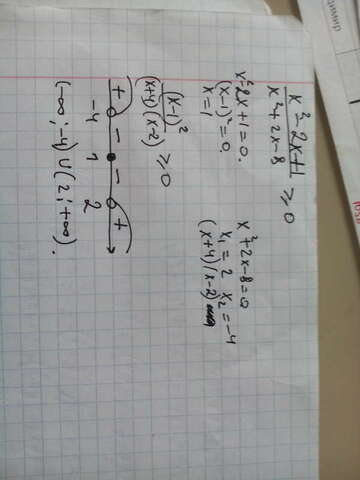 x²-2x+1
x²+2x-8
≥ 0
x²-2x+1=0.
(x-1)²=0.
x=1
x²+2x-8=0
x₁=2 x₂=-4
(x+4)(x-2)
(x-1)²
(x+4)(x-2)
≥ 0
+ - - +
-4 1 2
(-∞; -4) ∪ (2; +∞).